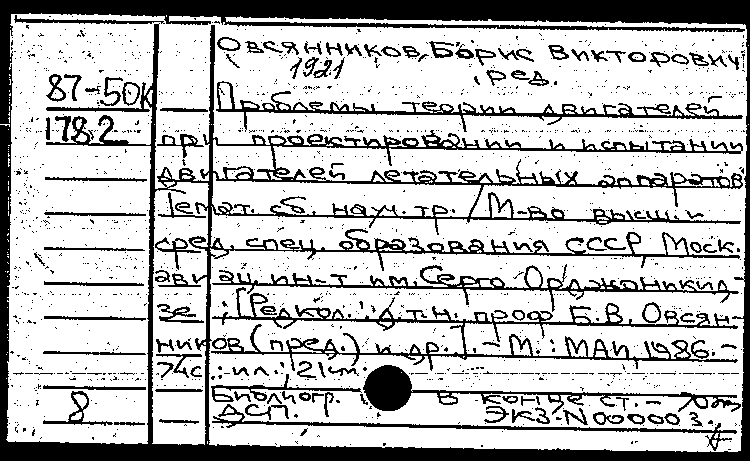 Овсянников, Борис Викторович,
1921 ред.
87-50К Проблемы теории двигателей
178.2 при проектировании и испытании
двигателей летательных аппаратов
Темат. сб. науч. тр. / М-во высш. и
сред. спец. образования СССР, Моск.
авиац. ин-т им. Серго Орджоникид-
зе ; [Редкол.: д.т.н. проф Б.В. Овсян-
ников (пред.) и др.]. - М. : МАИ, 1986. -
74с. : ил. ; 21см.
Библиогр. в конце ст. -
8 ДСП. ЭКЗ. N 000003.